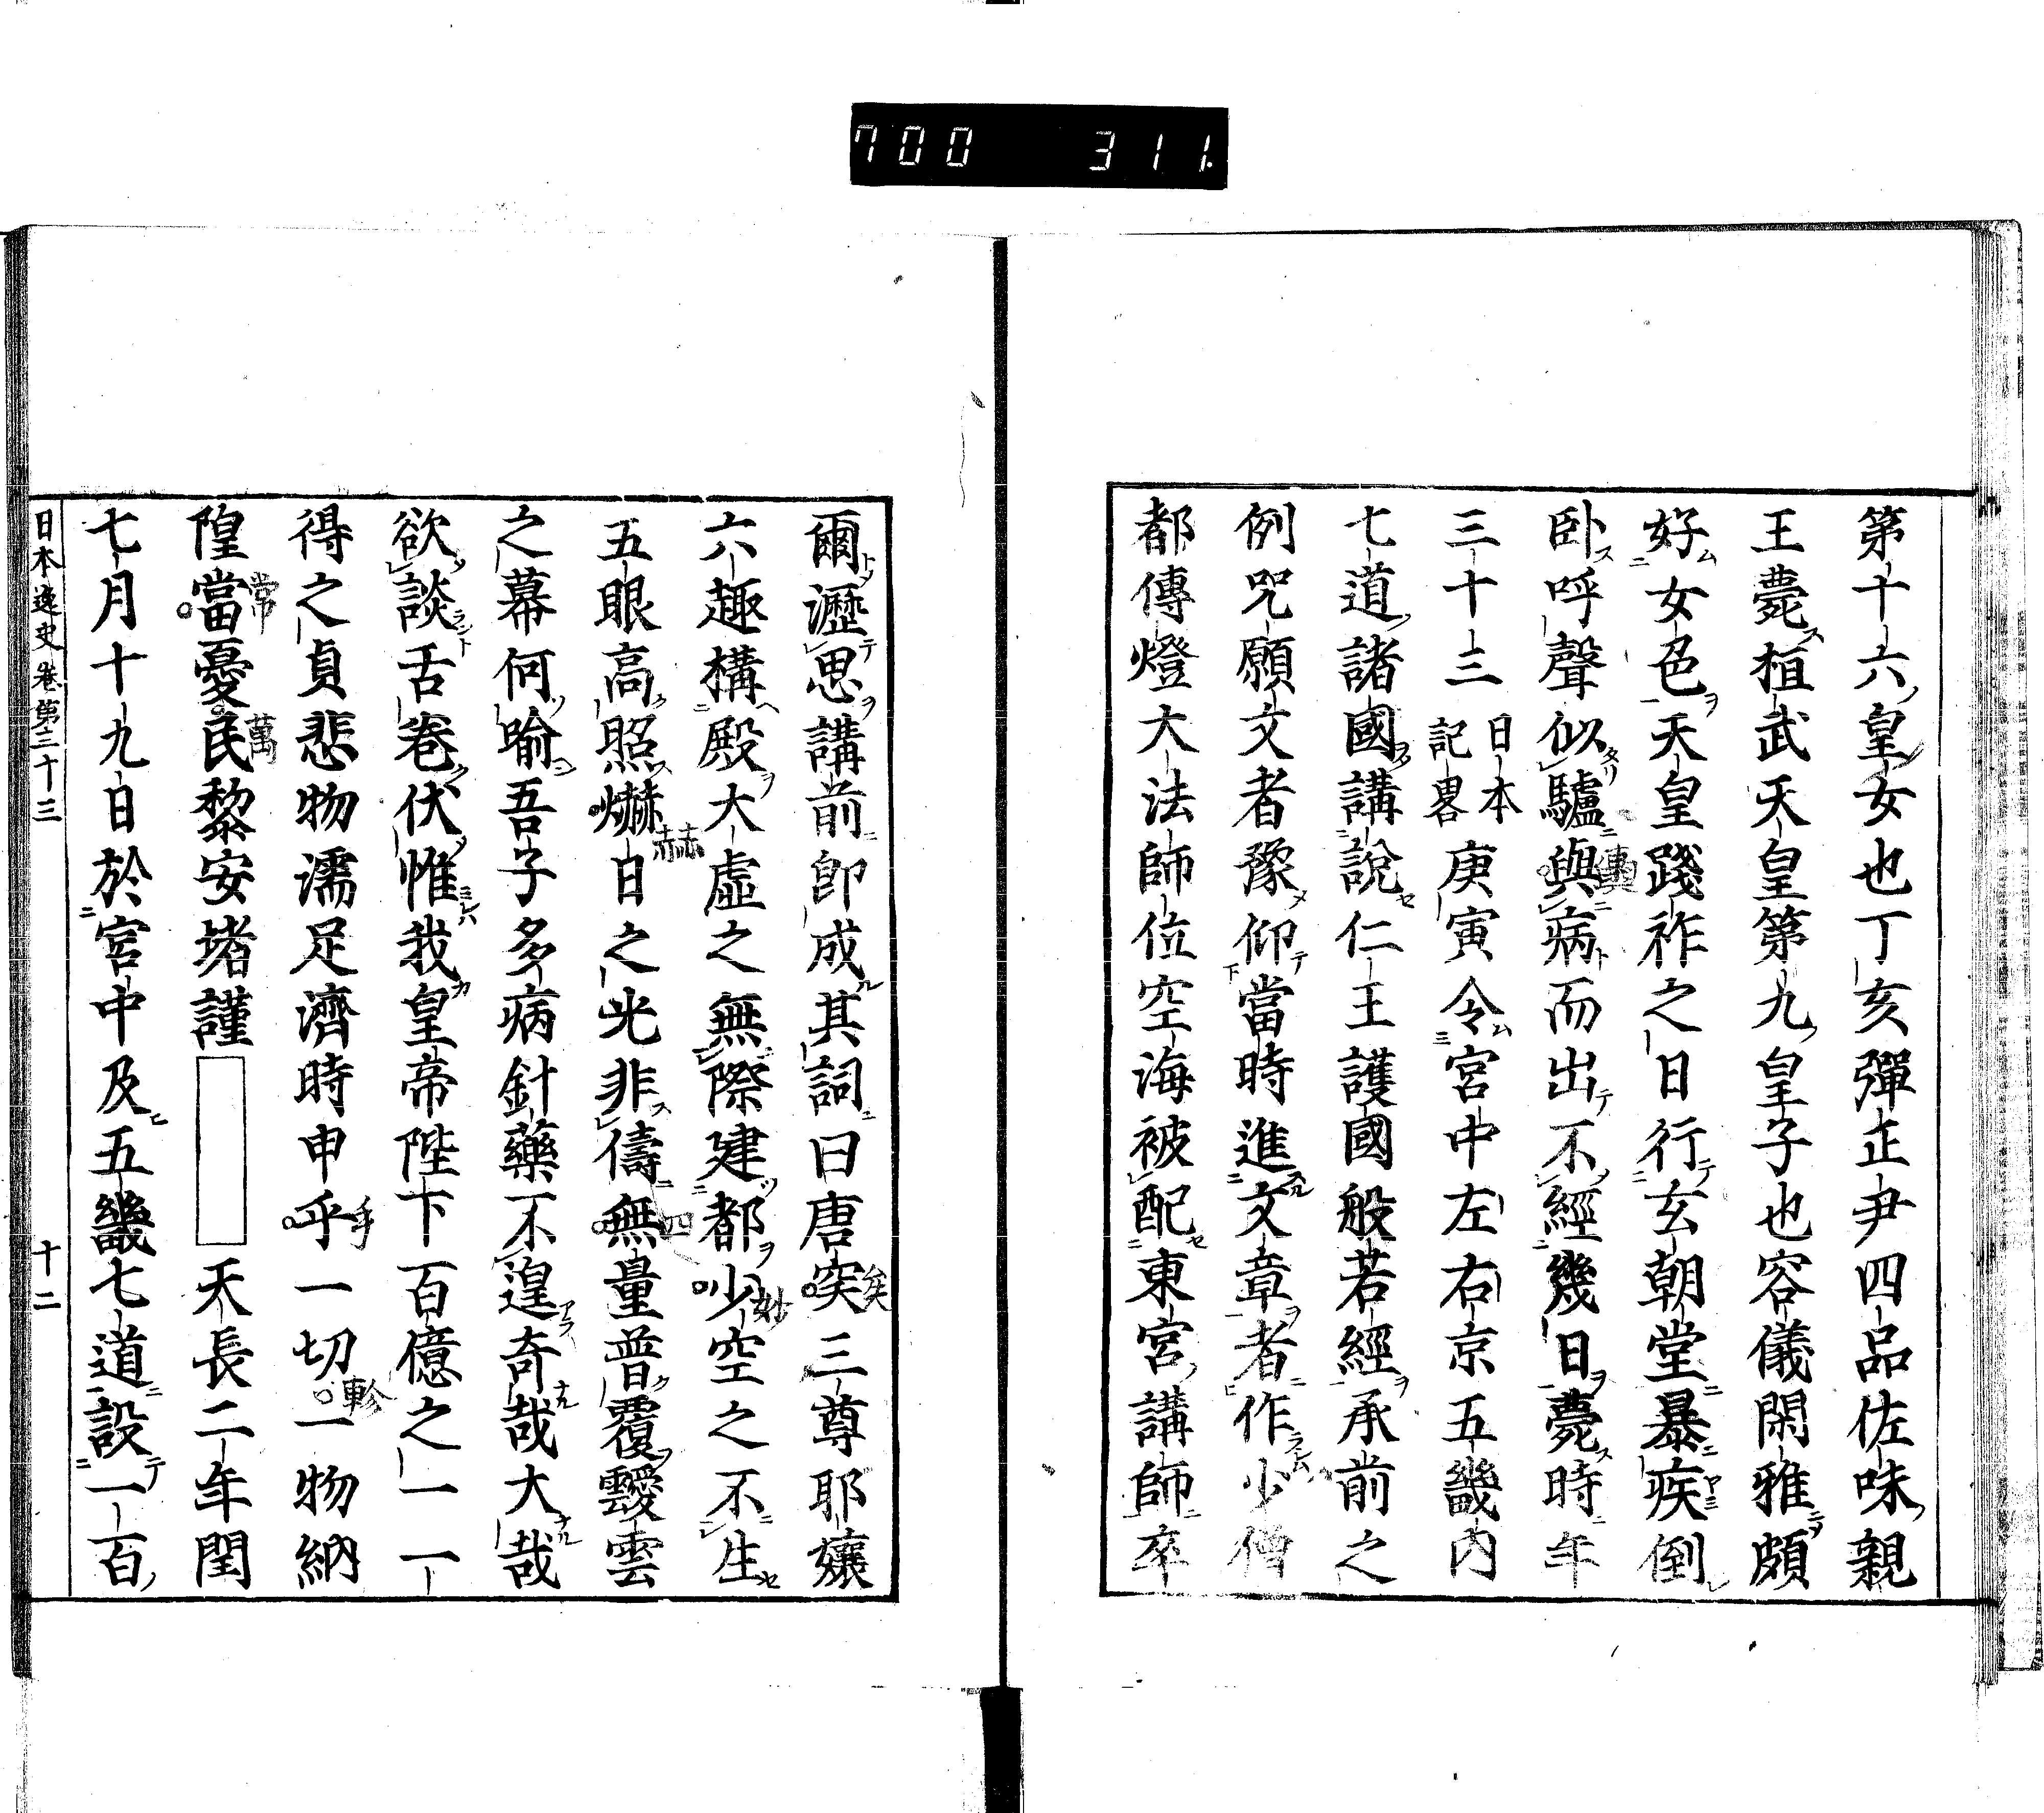 700 311
第十六皇女也丁亥彈正尹四品佐味親
王薨桓武天皇第九皇子也容儀閑雅頗
好女色天皇踐祚之日行玄朝堂暴疾倒
卧呼聲似驢與病而出不經幾日薨時年
三十三日本記畧庚寅令宮中左右京五畿内
七道諸國講說仁王護國般若經承前之
例咒願文者豫仰當時進文章者作少僧
都傳燈大法師位空海被配東宮講師卒
爾瀝思講前卽成其詞曰唐突三尊耶孃
六趣構殿大虛之無際建都少空之不生
五眼高照爀日之光非儔無量普覆靉雲
之幕何喻吾子多病針藥不遑奇哉大哉
欲談舌卷伏惟我皇帝陛下百億之一一
得之貞悲物濡足濟時申乎一切一物納
隍當憂民黎安堵謹 天長二年閏
七月十九日於宮中及五畿七道設一百
矣
妙
赫
四
手
軫
常
萬
輿
日本逸史卷第三十三 十二